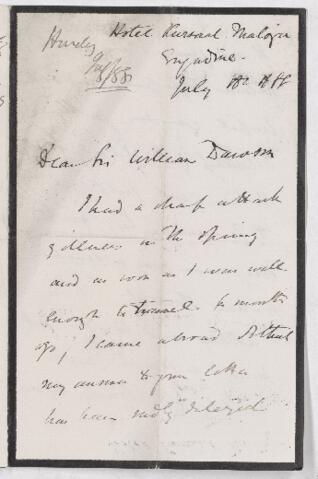 Hotel Kursaal Maloja
Engadine
July 18 1888
Dear Sir William Dawson
I had a sharp attack
of illness in the spring
and as soon as I was well
enough to travel
ago, I came abroad so that
my answer to your letter
has been sadly delayed